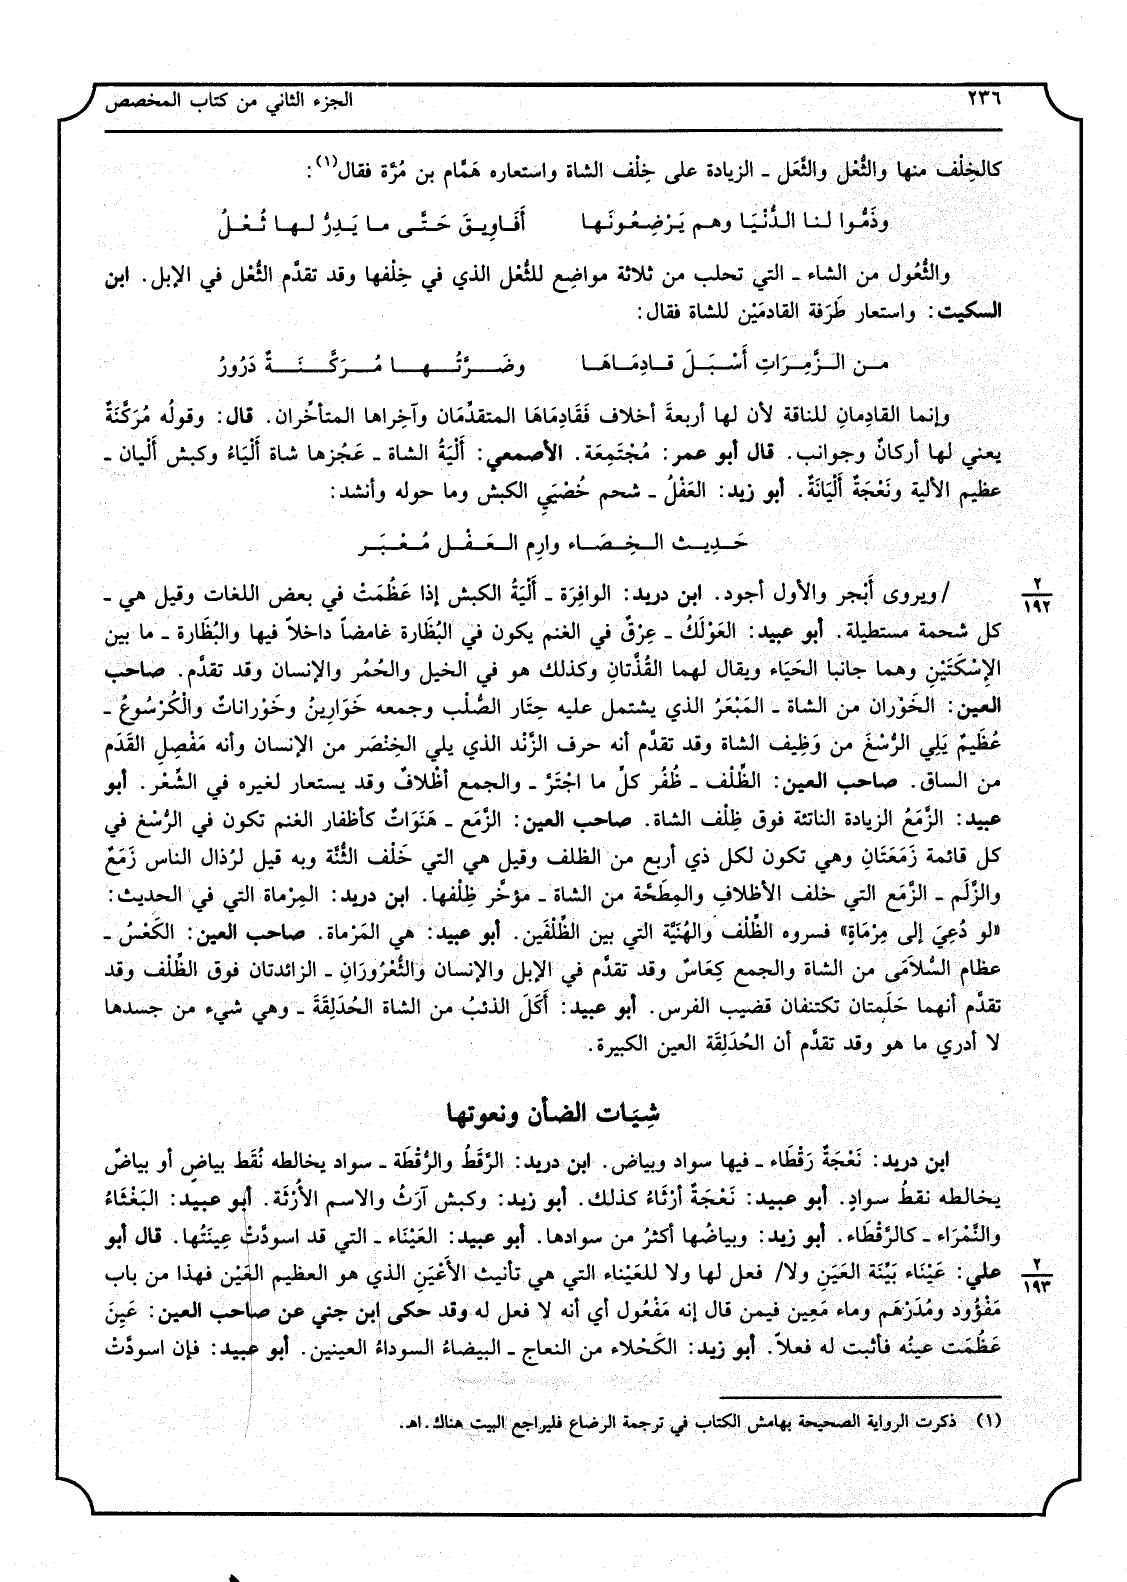 ٢٣٦
الجزء الثاني من كتاب المخصص
كالخِلْف منها والثُّعْل والثَّعَل ـ الزيادة على خِلْف الشاة واستعاره هَمَّام بن مُرَّة فقال(١):
وذَمُّوا لنا الدُّنْيَا وهم يَرْضِعُونَها    أَفَاوِيقَ حَتَّى ما يَدِرُّ لها ثُعْلُ
والثُّعُول من الشاء ـ التي تحلب من ثلاثة مواضِع للثُّعْل الذي في خِلْفها وقد تقدَّم الثُّعْل في الإبل. ابن
السكيت: واستعار طَرَفة القادمَيْن للشاة فقال:
من الزَّمِرَاتِ أَسْبَلَ قادِمَاهَا    وضَرَّتُها مُرَكَّنَةٌ دَرُورُ
وإنما القادِمانِ للناقة لأن لها أربعةَ أخلاف فَقَادِمَاهَا المتقدِّمَان وآخِراها المتأخِّران. قال: وقولُه مُرَكَّنَةٌ
يعني لها أركانٌ وجوانب. قال أبو عمر: مُجْتَمِعَة. الأصمعي: أَلْيَةُ الشاة ـ عَجُزها شاة أَلْيَاءُ وكبش أَلْيان ـ
عظيم الألية ونَعْجَةٌ أَلْيَانَةٌ. أبو زيد: العَفْلُ ـ شحم خُصْيَيِ الكبش وما حوله وأنشد:
حَدِيث الخِصَاء وارِم العَفْل مُعْبَر
/ ويروى أَبْجر والأول أجود. ابن دريد: الوافِرَة ـ أَلْيَةُ الكبش إذا عَظُمَتْ في بعض اللغات وقيل هي ـ
٢
١٩٢
كل شحمة مستطيلة. أبو عبيد: العَوْلَكُ ـ عِرْقٌ في الغنم يكون في البُظَارة غامضاً داخلاً فيها والبُظَارة ـ ما بين
الإِسْكَتَيْنِ وهما جانبا الحَيَاء ويقال لهما القُذَّتانِ وكذلك هو في الخيل والحُمُر والإنسان وقد تقدَّم. صاحب
العين: الخَوْران من الشاة ـ المَبْعَرُ الذي يشتمل عليه حِتَار الصُّلْب وجمعه خَوَارِينُ وخَوْراناتٌ والْكُرْسُوعُ ـ
عُظَيمٌ يَلِي الرُّسْغَ من وَظِيف الشاة وقد تقدَّم أنه حرف الزَّنْد الذي يلي الخِنْصَر من الإنسان وأنه مَفْصِل القَدَم
من الساق. صاحب العين: الظِّلْف ـ ظُفُر كلِّ ما اجْتَرَّ ـ والجمع أظْلافٌ وقد يستعار لغيره في الشِّعْر. أبو
عبيد: الزَّمَعُ الزيادة الناتئة فوق ظِلْف الشاة. صاحب العين: الزَّمَع ـ هَنَوَاتٌ كأظفار الغنم تكون في الرُّسْغ في
كل قائمة زَمَعَتَانِ وهي تكون لكل ذي أربع من الظلف وقيل هي التي خَلْف الثُّنَّة وبه قيل لرُذال الناس زَمَعٌ
والزَّلَم ـ الزَّمَع التي خلف الأظلاف والمِطَحَّة من الشاة ـ مؤخَّر ظِلْفها. ابن دريد: المِرْماة التي في الحديث:
«لو دُعِيَ إلى مِرْمَاةٍ» فسروه الظِّلْف والهُنَيَّة التي بين الظِّلْفَين. أبو عبيد: هي المَرْماة. صاحب العين: الكَعْسُ ـ
عظام السُّلاَمَى من الشاة والجمع كِعَاسٌ وقد تقدَّم في الإبل والإنسان والثُّعْرُورَانِ ـ الزائدتان فوق الظِّلْف وقد
تقدَّم أنهما حَلَمتان تكتنفان قضيب الفرس. أبو عبيد: أَكَلَ الذئبُ من الشاة الحُدَلِقَةَ ـ وهي شيء من جسدها
لا أدري ما هو وقد تقدَّم أن الحُدَلِقَة العين الكبيرة.
شِيَات الضأن ونعوتها
ابن دريد: نَعْجَةٌ رَقْطَاء ـ فيها سواد وبياض. ابن دريد: الرَّقَطُ والرُّقْطَة ـ سواد يخالطه نُقَط بياضٍ أو بياضٌ
يخالطه نقطُ سوادٍ. أبو عبيد: نَعْجَةٌ أرْثَاءُ كذلك. أبو زيد: وكبش آرَثُ والاسم الأُرْثَة. أبو عبيد: البَغْثَاءُ
والنَّمْرَاء ـ كالرَّقْطَاء. أبو زيد: وبياضُها أكثرُ من سوادها. أبو عبيد: العَيْنَاء ـ التي قد اسودَّتْ عِينَتُها. قال أبو
علي: عَيْنَاء بَيِّنَة العَيَنِ ولا/ فعل لها ولا للعَيْناء التي هي تأنيث الأَعْيَن الذي هو العظيم العَيْن فهذا من باب
٢
١٩٣
مَفْؤُود ومُدَرْهَم وماء مَعِين فيمن قال إنه مَفْعُول أي أنه لا فعل له وقد حكى ابن جني عن صاحب العين: عَيِنَ
عَظُمَت عينُه فأثبت له فعلاً. أبو زيد: الكَحْلاء من النعاج ـ البيضاءُ السوداءُ العينين. أبو عبيد: فإن اسودَّتْ
(١) ذكرت الرواية الصحيحة بهامش الكتاب في ترجمة الرضاع فليراجع البيت هناك. اهـ.